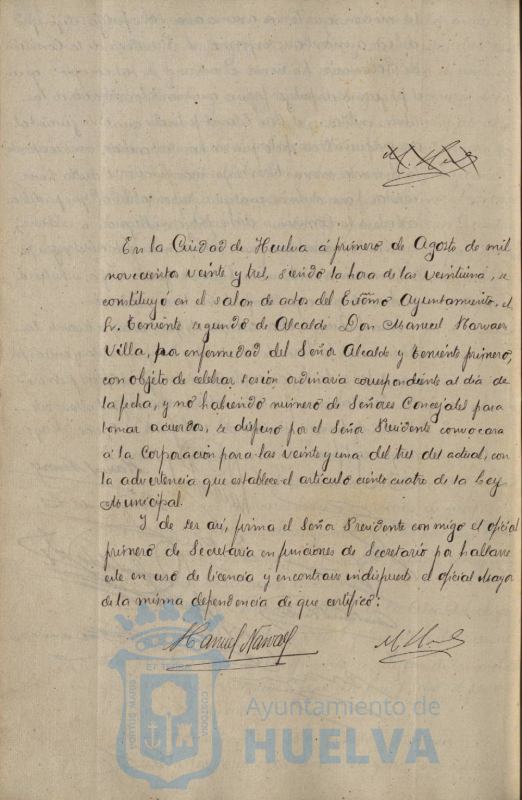 En la Ciudad de Huelva á primero de Agosto de mil
novecientos veinte y tres, siendo la hora de las veintiuna, se
constituyó en el salon de actos del Excmo Ayuntamiento, el
Sr. Teniente segundo de Alcalde Don Manuel Narvaez
Villa, por enfermedad del Señor Alcalde y Teniente primero,
con objeto de celebrar sesion ordinaria correspondiente al dia de
la fecha, y no habiendo numero de Señores Concejales para
tomar acuerdos, se dispuso por el Señor Presidente convocara
á la Corporacion para las veinte y una del tres del actual, con
la advertencia que establece el articulo ciento cuatro de la Ley
Municipal.
Y de ser asi, firma el Señor Presidente conmigo el oficial
primero de Secretaría en funciones de Secretario por hallarse
este en uso de licencia y encontrarse indispuesto el oficial Mayor
de la misma dependencia de que certifico:
Manuel Narvaez
Ayuntamiento de
HUELVA